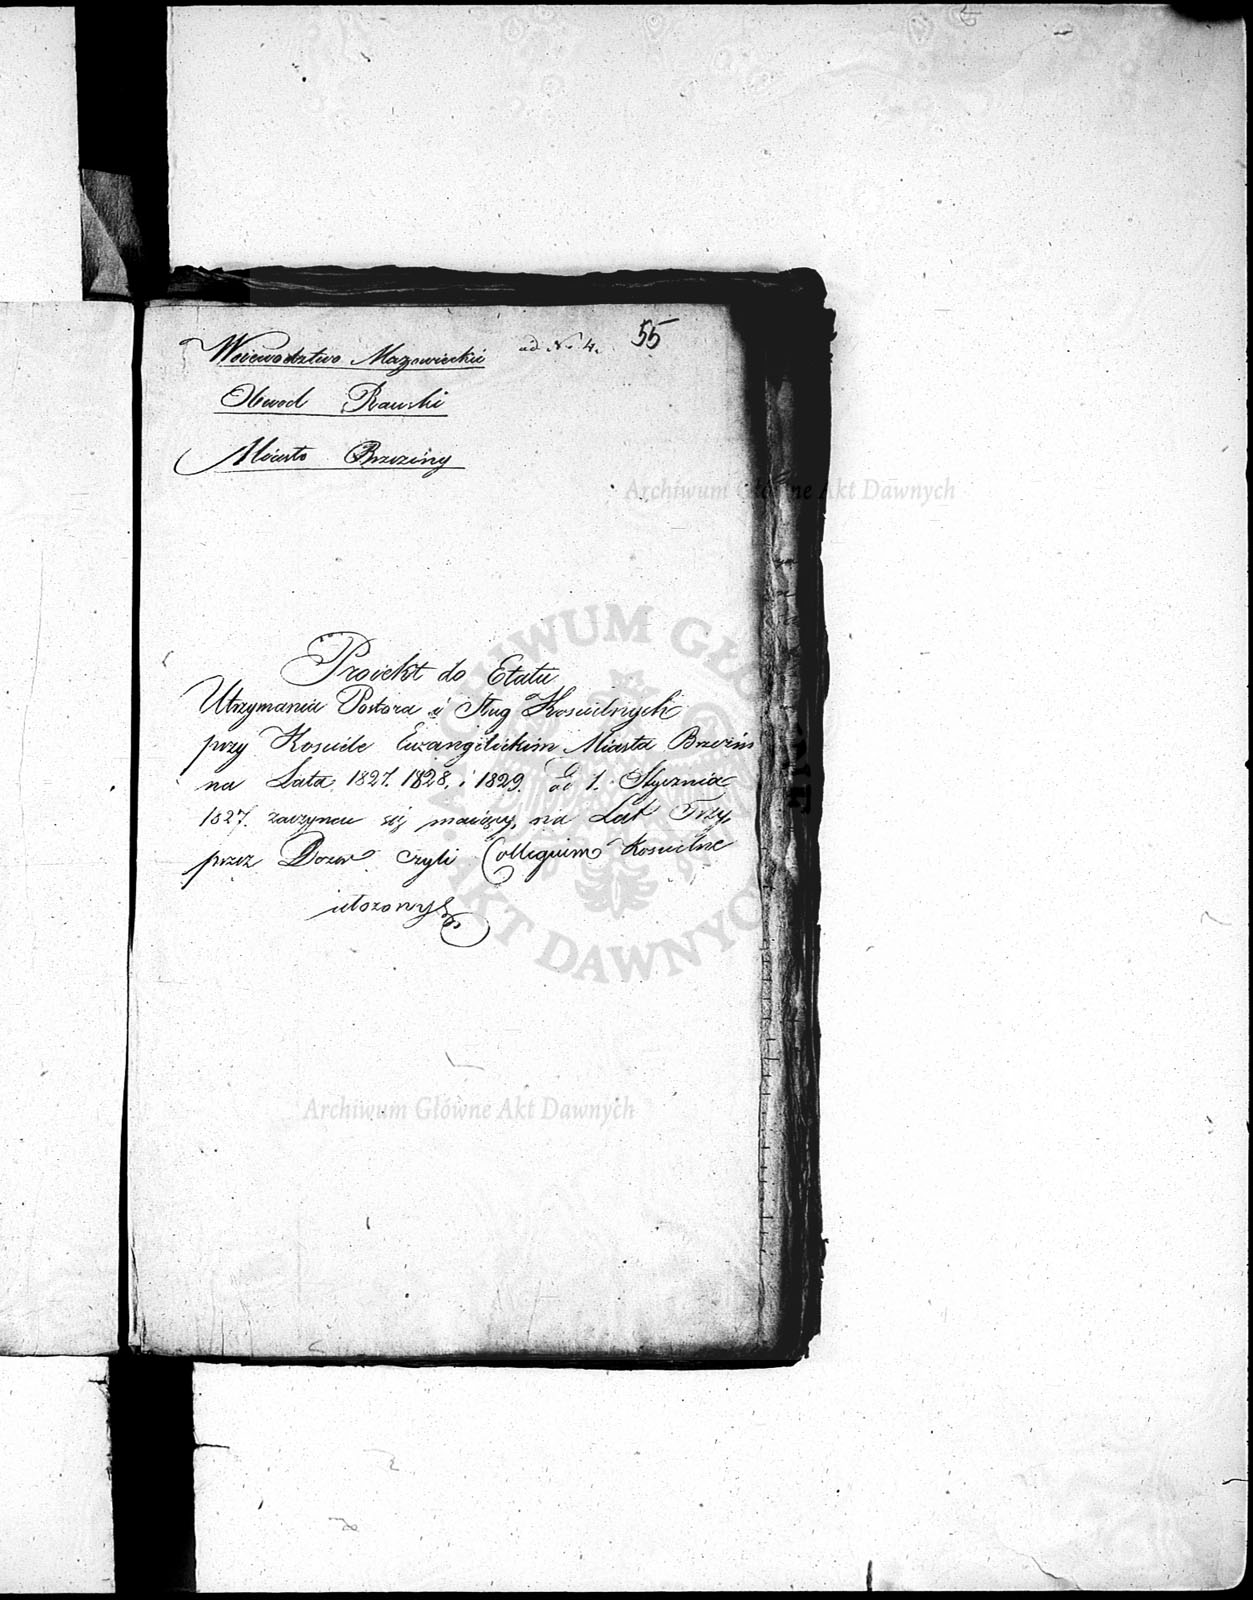 ad No 4. 55
Woiewodztwo Mazowieckie
Obwod Rawski
Miasto Brzeziny
Archiwum Główne Akt Dawnych
Proiekt do Etatu
Utrzymania Pastora i Sług Kościelnych
przy Kosciele Ewangelickim Miasta Brzezin
na Lata 1827. 1828, i 1829. od 1. Stycznia
1827. zaczynać się maiący, na Lat Trzy,
przez Dozor czyli Collegium Koscielne
ułozony
ARCHIWUM GŁÓWNE AKT DAWNYCH
Archiwum Główne Akt Dawnych